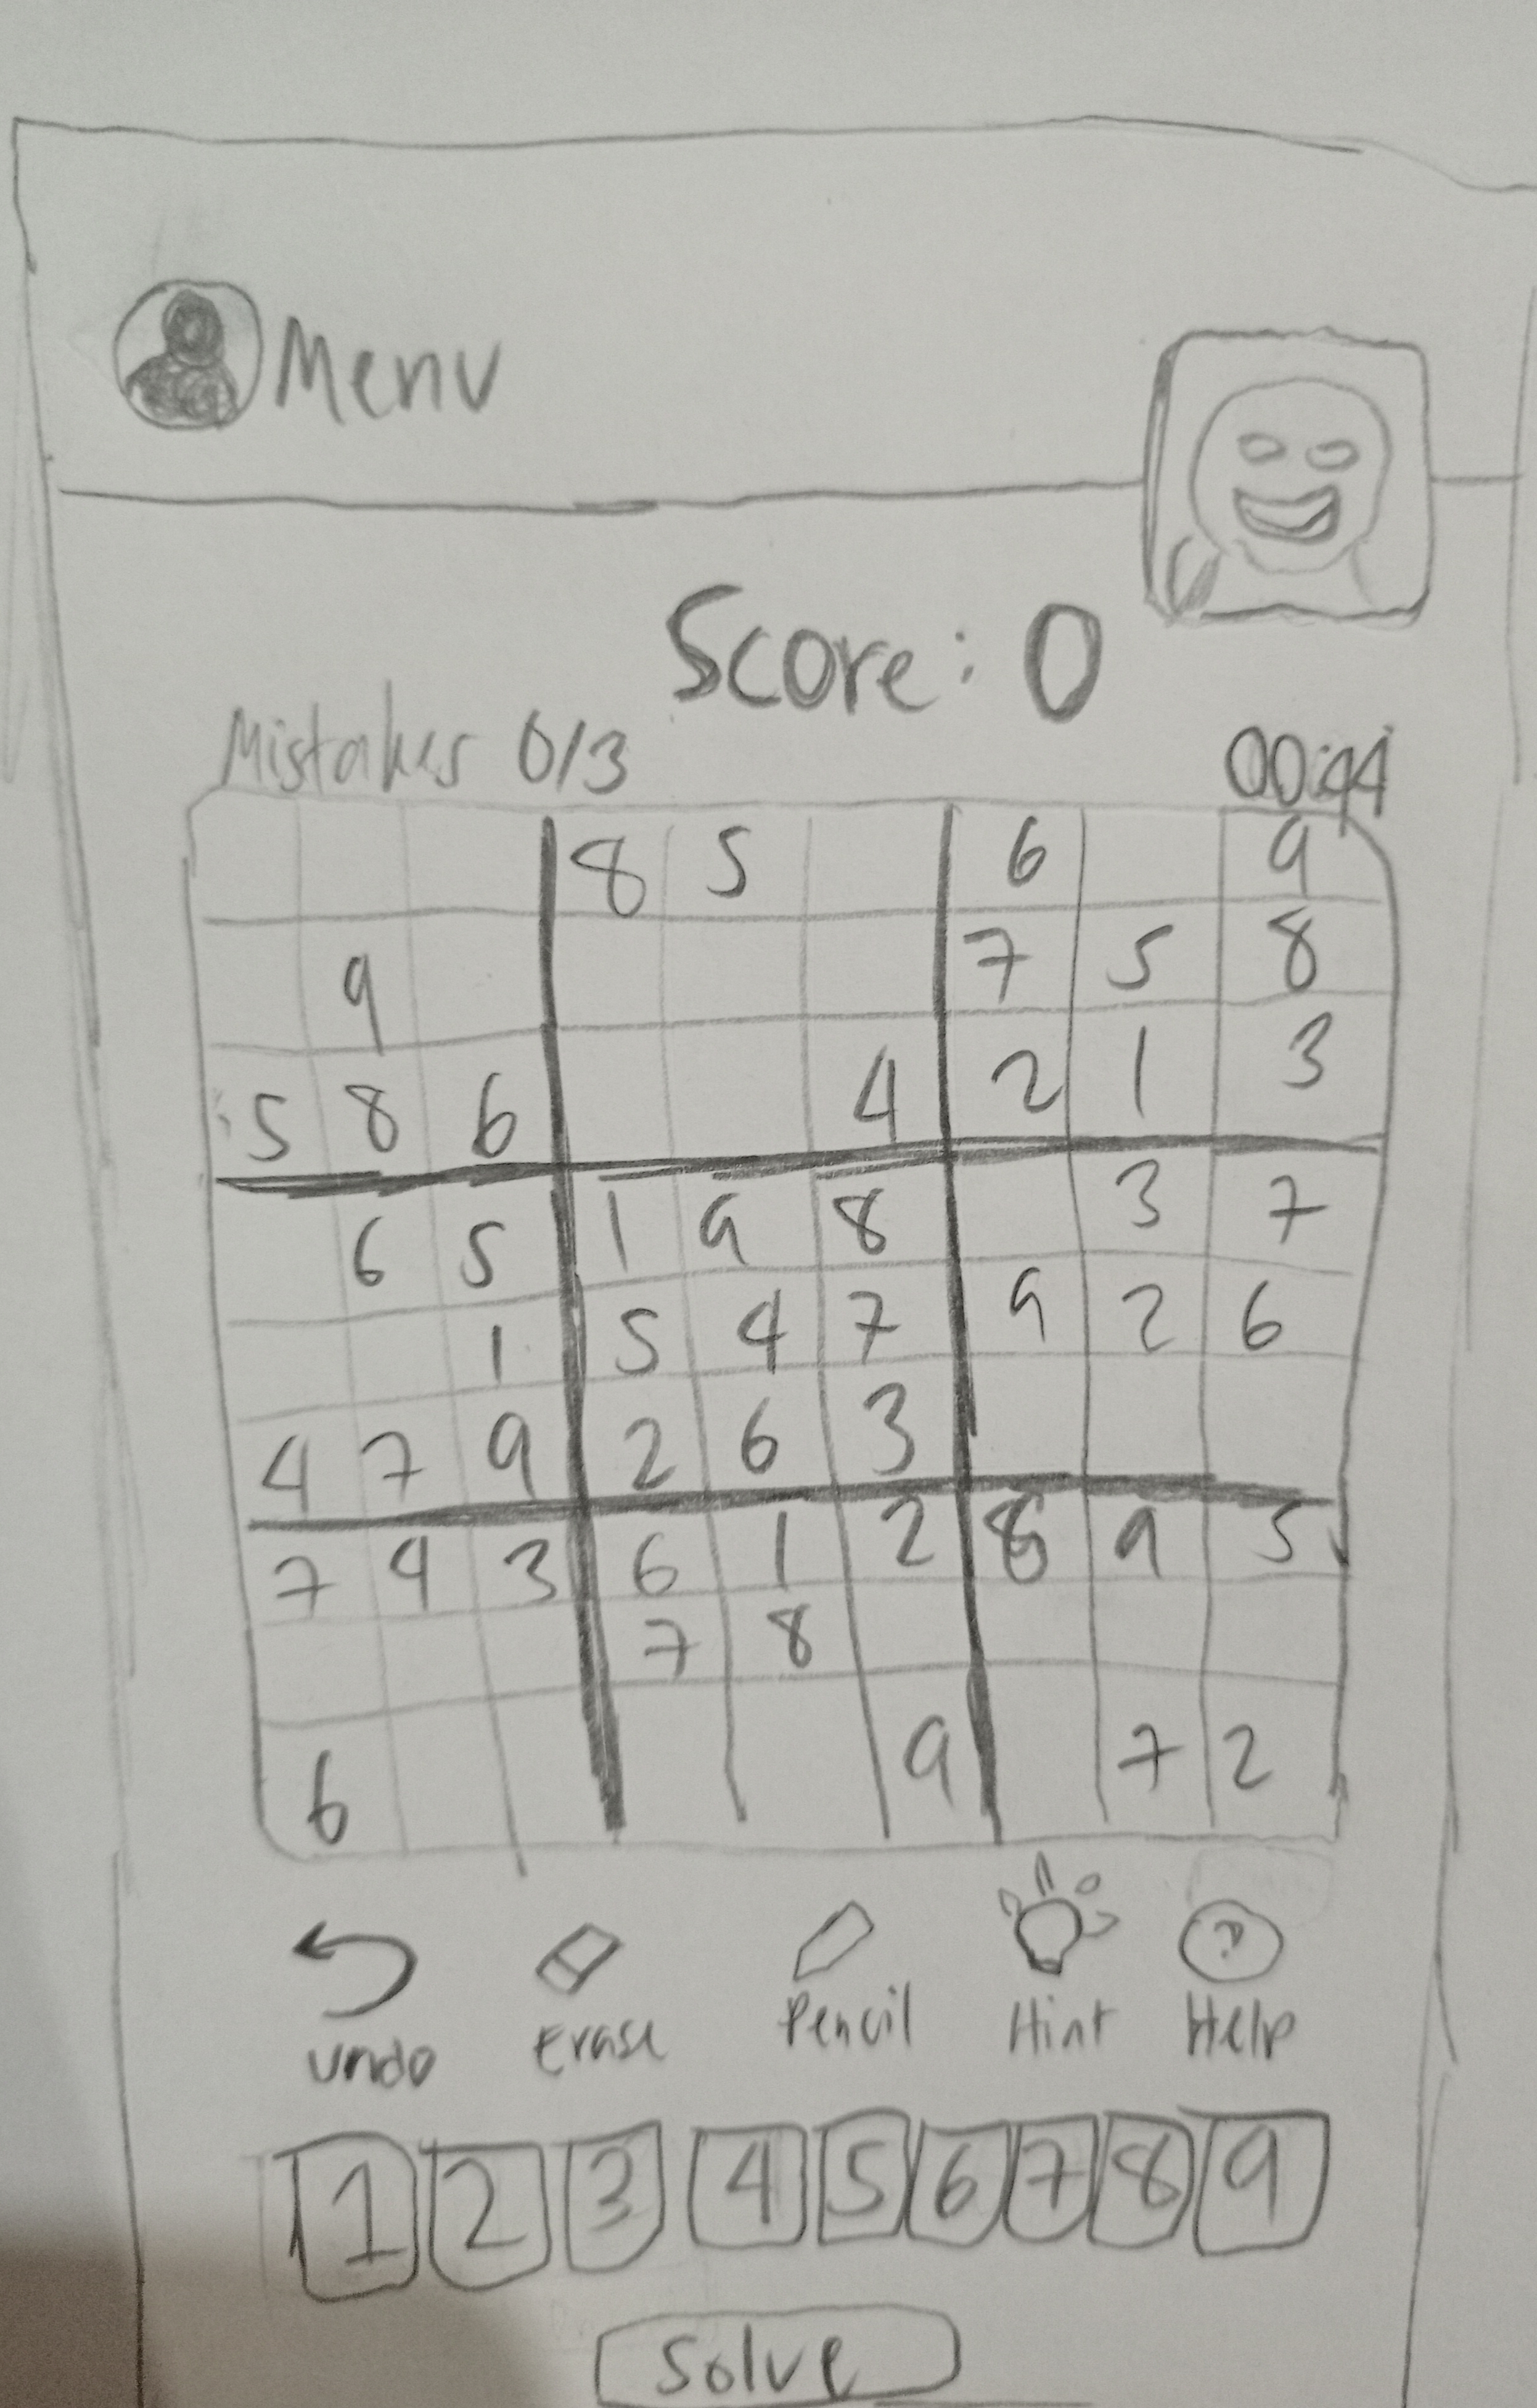 Menu
Score: 0
Mistakes 0/3 00:44
8 5 6 9
9 7 5 8
5 8 6 4 2 1 3
6 5 1 9 8 3 7
1 5 4 7 9 2 6
4 7 9 2 6 3
7 4 3 6 1 2 8 9 5
7 8
6 9 7 2
undo Erase Pencil Hint ? Help
1 2 3 4 5 6 7 8 9
Solve